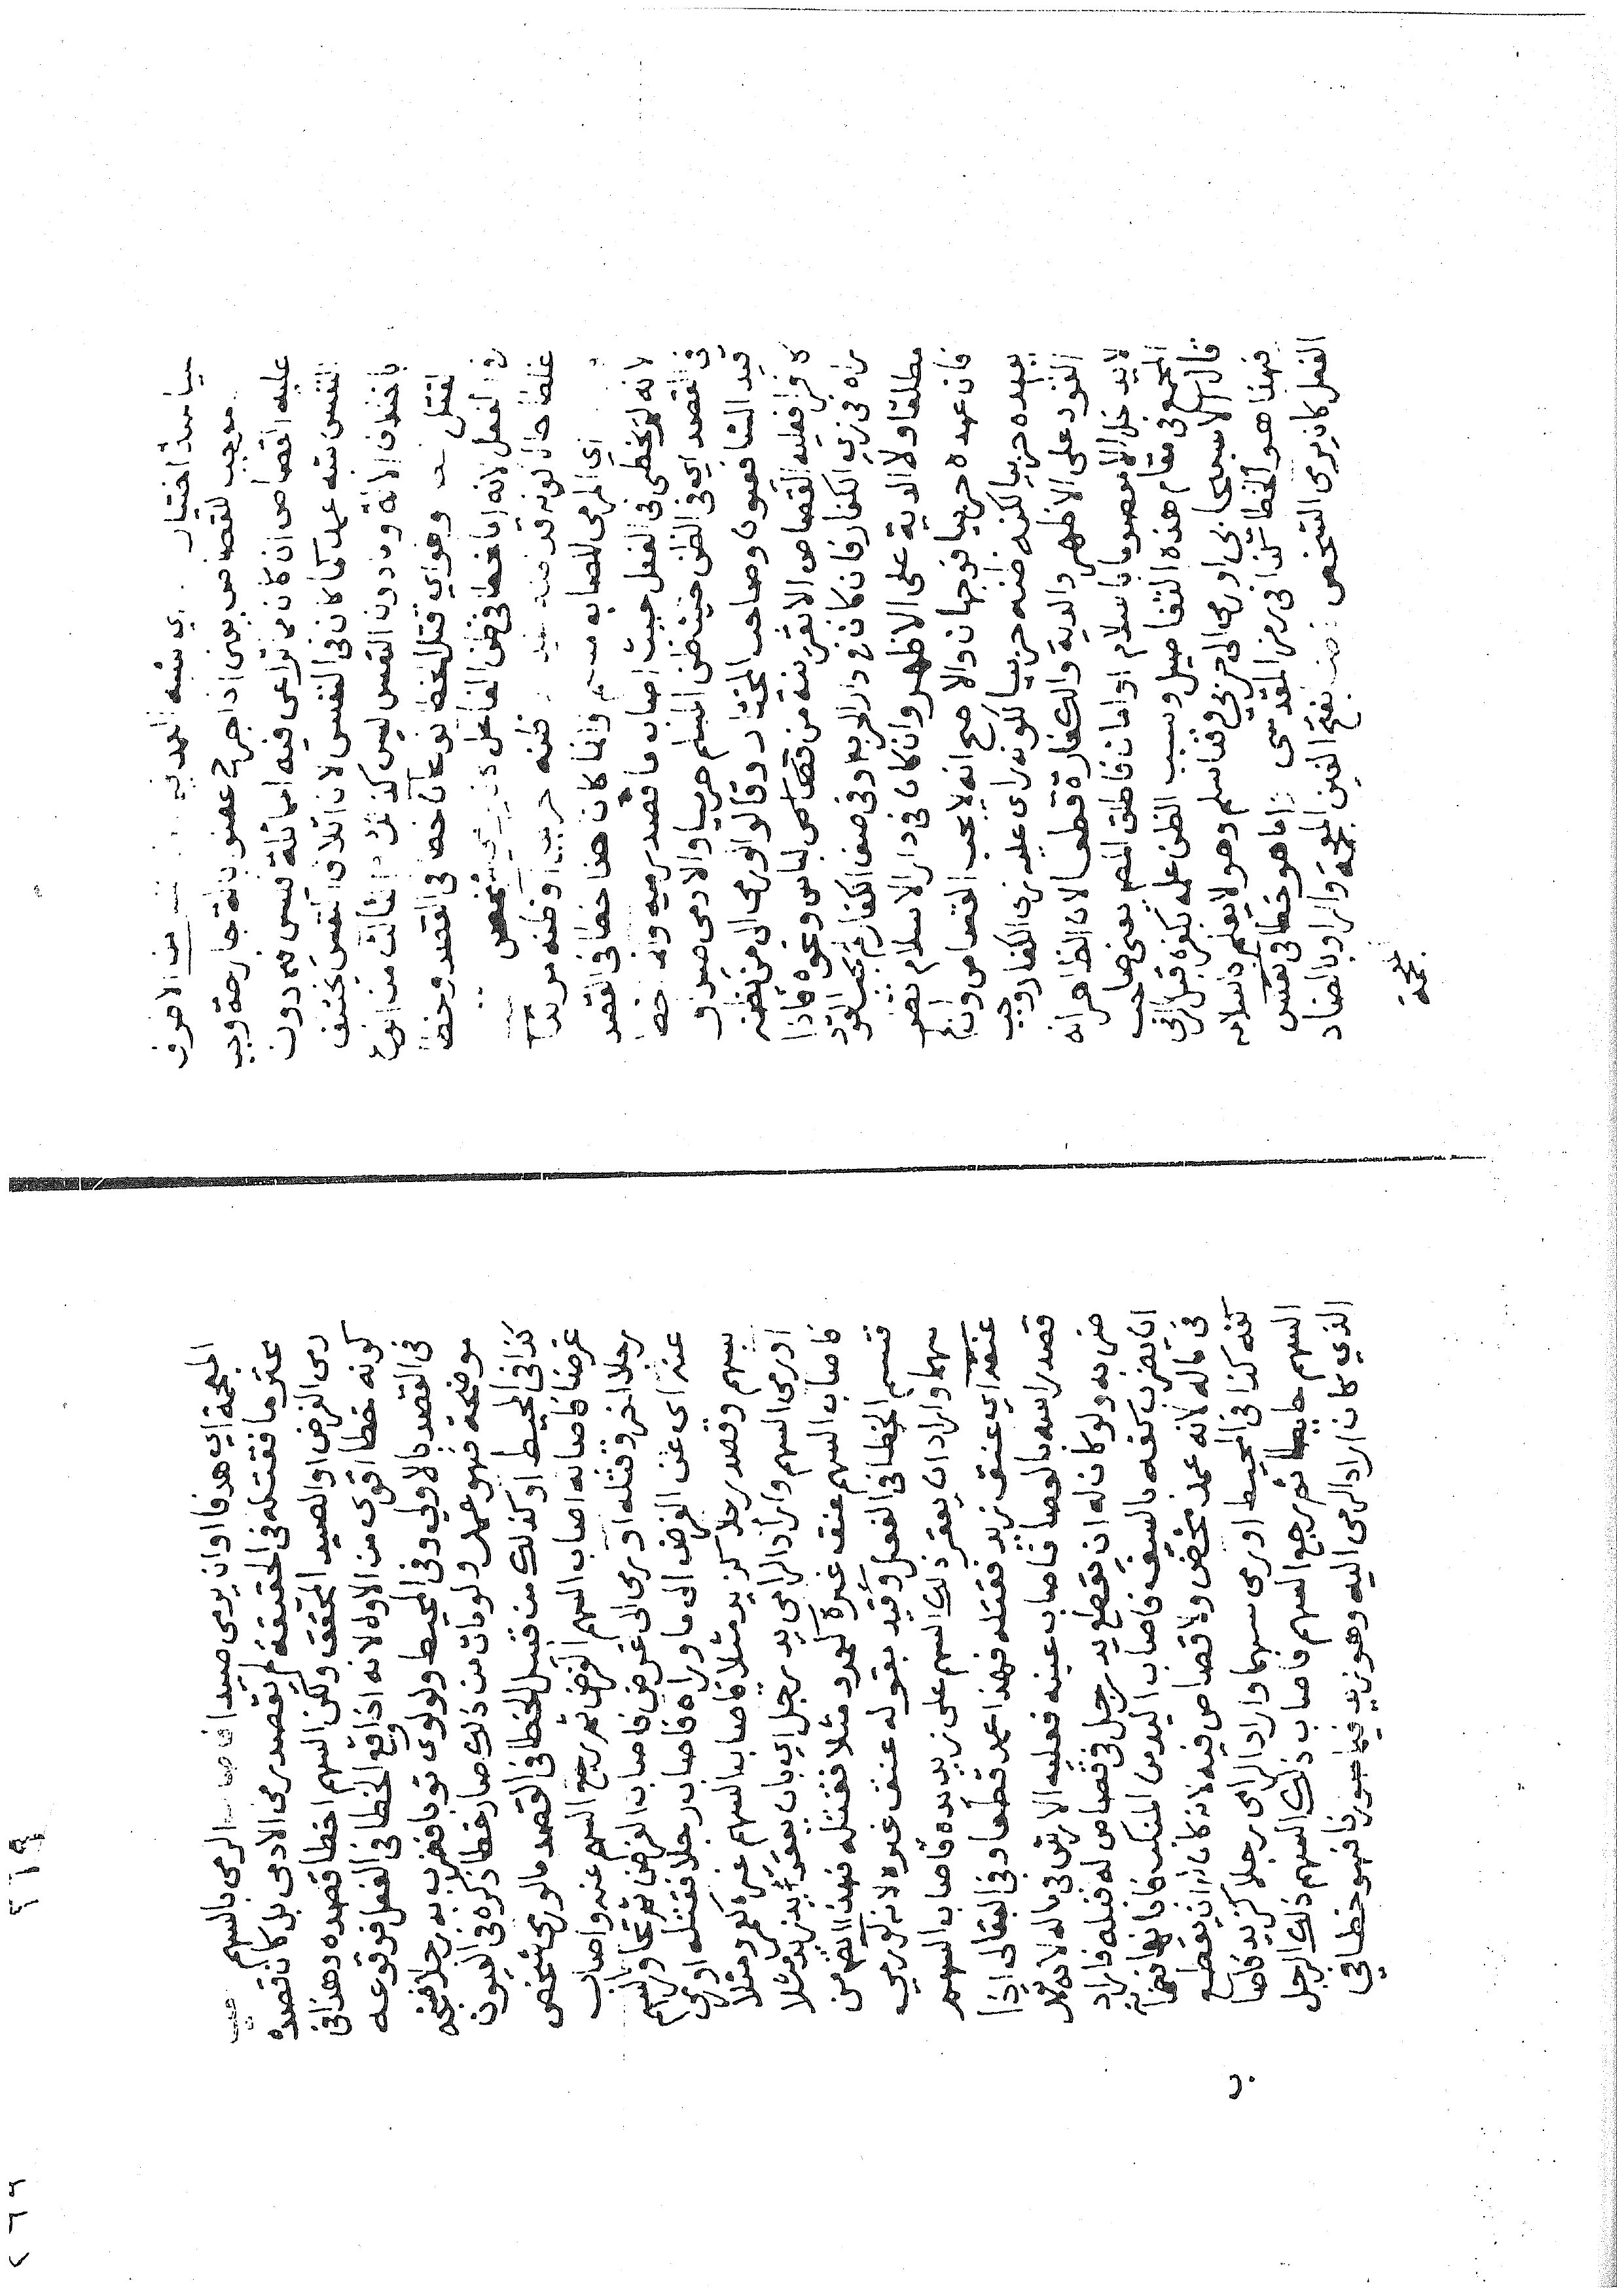 سياسة اختيار اي شبه العمد فيه من الاطراف
موجب للقصاص يعنى اذا جرح عضو بالة جارحة وجب
عليه القصاص ان كان مما تراعى فيه المماثلة فليس فيما دون
النفس شبه عمد كما كان فى النفس لان اتلاف النفس يختلف
باختلاف الالة وما دون النفس ليس كذلك الثالث من انواع
القتل وهو اي قتل الخطا نوعان خطا فى القصد وخطا
فى الفعل لانه اما خطا فى ظن الفاعل كان يرمى شخصا
ظنه حربيا او ظنه مرتدا
اي المرمى المصاب مسلم وانما كان هذا خطا فى القصد
لانه لم يخطى فى الفعل حيث اصاب ما قصد رميه وانه خطا
فى القصد اي فى الظن حيث ظن المسلم حربيا والادمى صيدا و
قيد الشافعيون وصاحب المختار وقالوا لو رمى الى من يظنه
كافرا ففيه القصاص الا بقرينة من قصاص لباس ونحوه فاذا
راه فى زى الكفار فان كان فى دار الحرب وفى صف الكفار لم يجب القود
مطلقا ولا الدية على الاظهر وان كان فى دار الاسلام نظر
فان عهده حربيا فوجهان والاصح انه لا يجب القصاص وان لم
يعهده حربيا لكنه ظنه حربيا لكونه راى عليه زى الكفار وجب
القود على الاظهر والدية والكفارة قطعا لان الظاهر انه
لا يدخل الا معصوما باسلام او امان فاطلق المصر يعنى صاحب
المجمع فى مقام هذه التفاصيل وسبب الظن علمه بكفره قبل ان
قال الاسبيجابى او رمى الى حربى وقد اسلم وهو لا يعلم باسلامه
فهذا هو الخطا كذا فى رمز المقدسى واما هو خطا فى نفس
الفعل كان يرمى الشخص غرضا بفتح الغين المعجمة والراء وبالضاد
المعجمة
المعجمة اي هدفا او ان يرمى صيدا فاصاب الرمى بالسهم
عثر ما فقتله فى الحقيقة لم يقصد رمى الادمى بل كان قصده
رمى الغرض او الصيد المحقق ولكن السهم اخطا قصده وهذا فى
كونه خطا اقوى من الاول لانه اذا وقع الخطا فى الفعل فوقوعه
فى القصد بالاولى وفى المحيط ولو لوى ثوبا فضرب به رجلا فشجه
موضحة فهو عمد ولو مات من ذلك صار خطا ذكره فى العيون
كذا فى المحيط او كذلك من قبيل الخطا فى القصد ما لو رمى شخص
غرضا فاصابه اصاب السهم الغرض ثم رجع السهم عنه واصاب
رجلا اخر وقتله او رمى الى غرض فاصاب الغرض ثم تجاوز السهم
عنه اي عن الغرض الى ما وراه فاصاب رجلا فقتله او رمى
بسهم وقصد رجلا كزيد مثلا فاصاب السهم غيره كعمرو مثلا
او رمى السهم واراد الرامي يد رجل اي بان يعقر يد زيد مثلا
فاصاب السهم عنق غيره كعمرو مثلا فقتله فهذا ايضا من
قسم الخطا فى الفعل وقيد بقوله عنق غيره لانه لو رمى
سهما واراد ان يعقر ذلك السهم على زيد يده فاصاب السهم
عنقه اي عنق زيد فقتله فهذا عمد قطعا وفى البقالى اذا
قصد راسه بالعصا فاصاب عينه فعليه الارش فى ماله لانه عمد
ضربه ولو كان له ان يقطع يد رجل فى قصاص له قبله فاراد
ان يضرب كفه بالسيف فاصاب اليد من المنكب فابانها فضمانه
فى ماله لانه عمد محض ولا قصاص فيه لانه كان له ان يقطع
كفه كذا فى المحيط او رمى سهما واراد الرامى رجلا كزيد فاصا
السهم حايطا ثم رجع السهم فاصاب ذلك السهم ذلك الرجل
الذي كان اراد الرمى اليه وهو زيد فيما صورنا فهو خطا فى
٢١٩